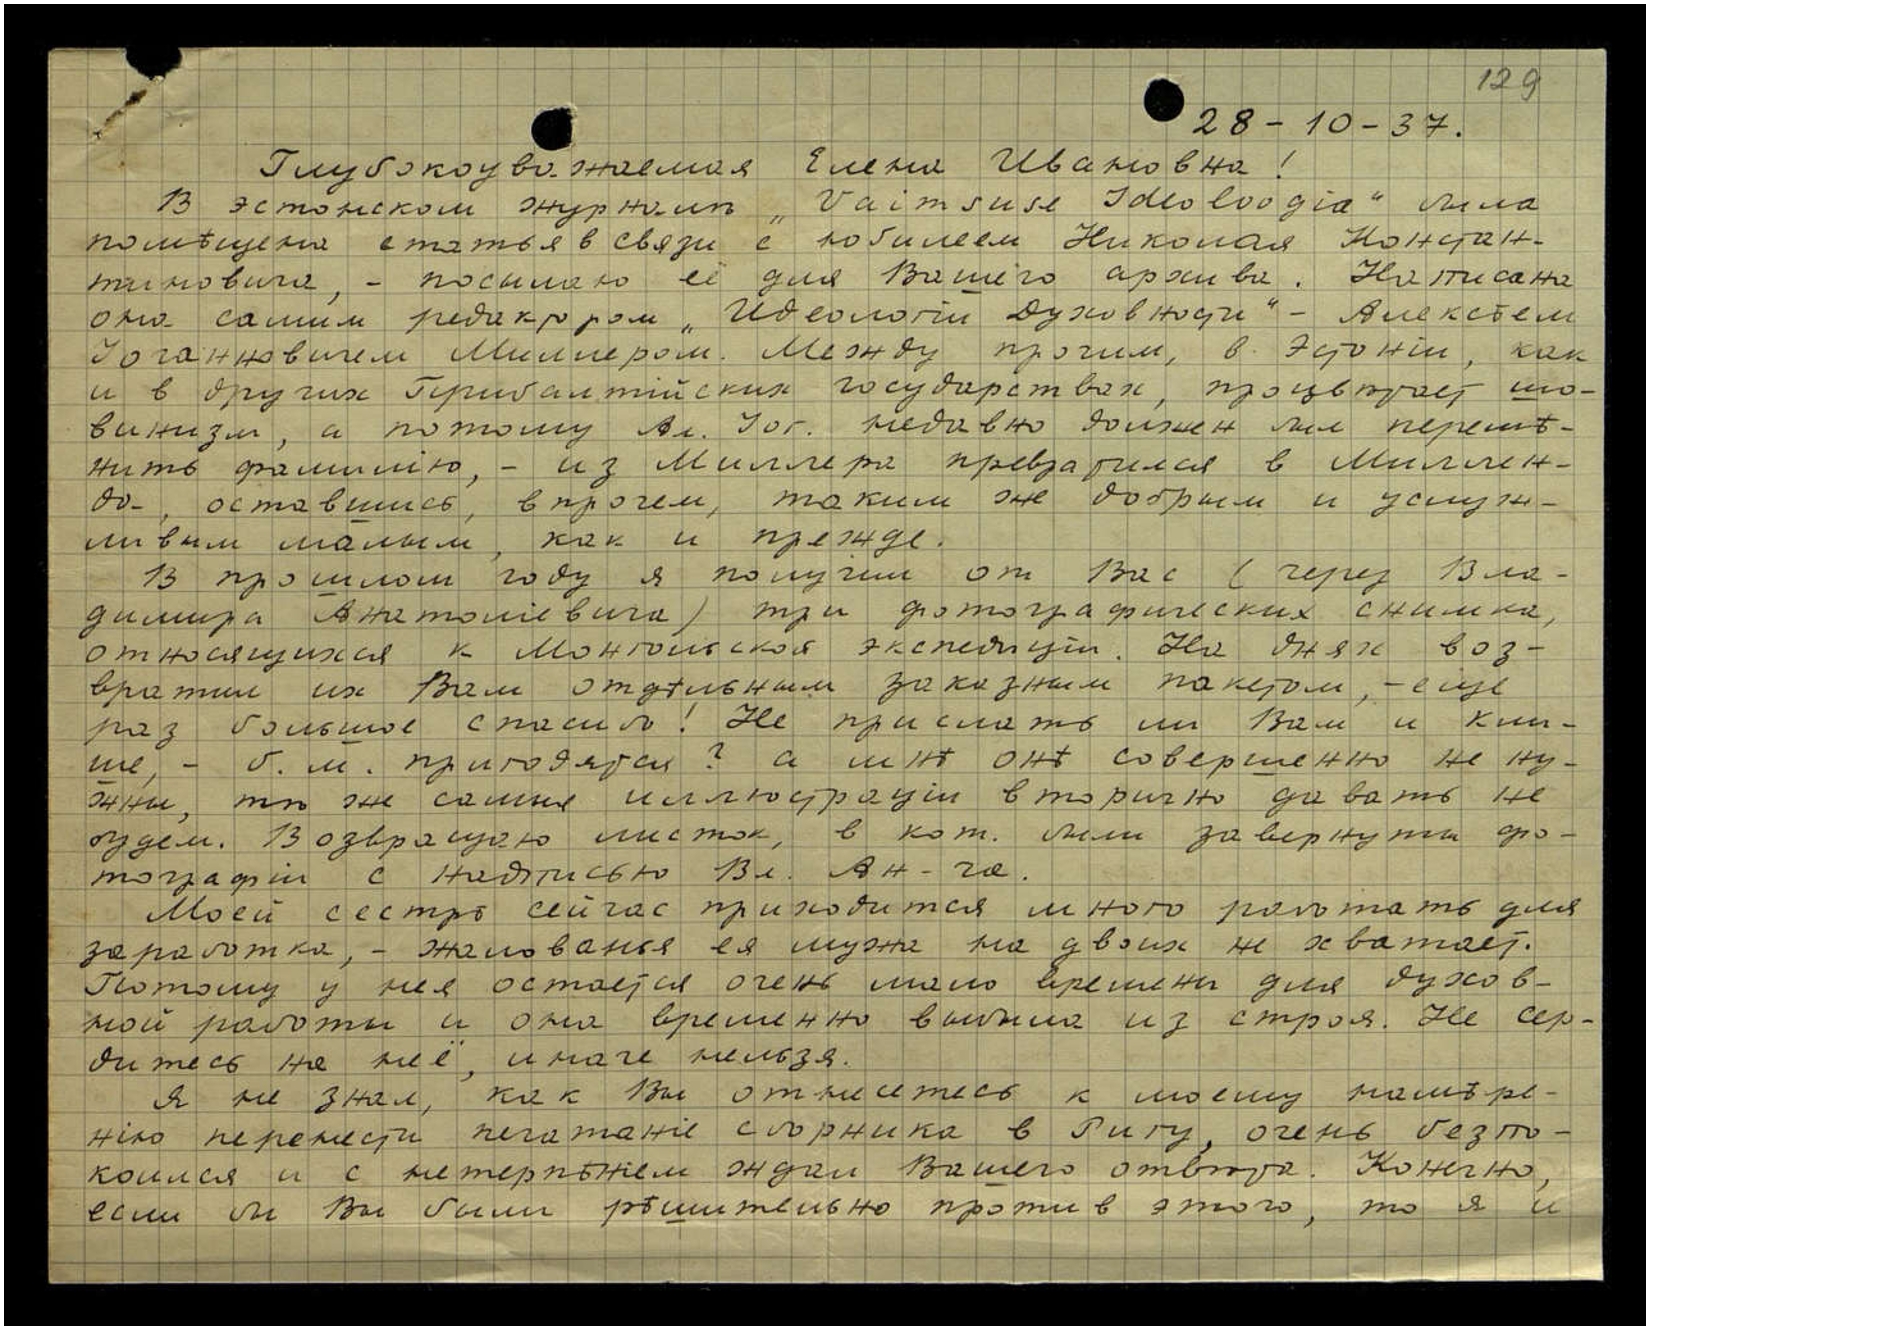 129
28-10-37.
Глубокоуважаемая Елена Ивановна!
В эстонском журналѣ „Vaimsuse Ideoloogia“ была
помѣщена статья в связи с юбилеем Николая Констан-
тиновича, - посылаю её для Вашего архива. Написана
она самим редактором „Идеологіи Духовности“ - Алексѣем
Іоганновичем Миллером. Между прочим, в Эстоніи, как
и в других Прибалтійских государствах, процвѣтает шо-
винизм, а потому Ал. Іог. недавно должен был перемѣ-
нить фамилію, - из Миллера превратился в Миллен-
до, оставшись, впрочем, таким же добрым и услуж-
ливым малым, как и прежде.
В прошлом году я получил от Вас (через Вла-
димира Анатоліевича) три фотографических снимка,
относящихся к Монгольской экспедиціи. На днях воз-
вратил их Вам отдѣльным заказным пакетом, - еще
раз большое спасибо! Не прислать ли Вам и кли-
ше, - б. м. пригодятся? а мнѣ онѣ совершенно не ну-
жны, тѣ же самыя иллюстраціи вторично давать не
будем. Возвращаю листок, в кот. были завернуты фо-
тографіи с надписью Вл. Ан-ча.
Моей сестрѣ сейчас приходится много работать для
заработка, - жалованья ея мужа на двоих не хватает.
Потому у нея остается очень мало времени для духов-
ной работы и она временно выбыла из строя. Не сер-
дитесь на неё, иначе нельзя.
Я не знал, как Вы отнесетесь к моему намѣре-
нію перенести печатаніе сборника в Ригу, очень безпо-
коился и с нетерпѣніем ждал Вашего отвѣта. Конечно,
если бы Вы были рѣшительно против этого, то я и